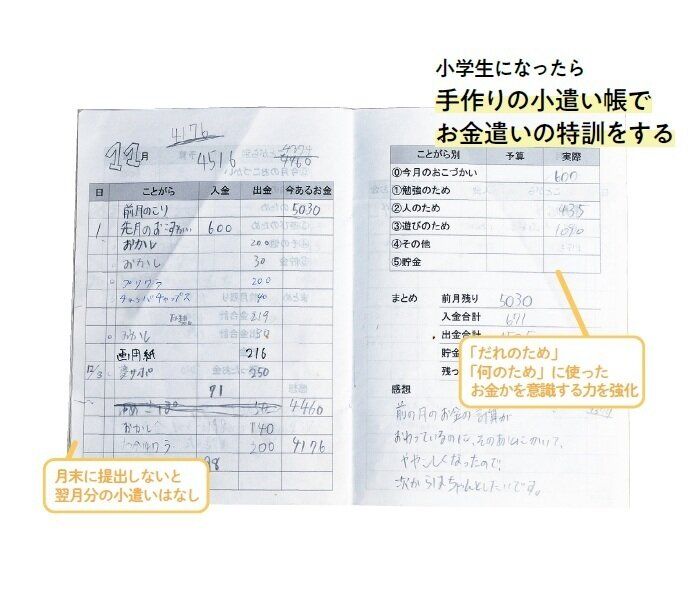 小学生になったら
手作りの小遣い帳で
お金遣いの特訓をする
4176
11月
4516
4460
日 ことがら 入金 出金 今あるお金
前月のこり 5030
1 先月のおこづかい 600
おかし 200
おかし 30
プリクラ 200
チャッパチャップス 40
219
おかし
画用紙 216
12/3 250
71
4460
おかし 140
200 4176
98
ことがら別 予算 実際
⓪今月のおこづかい 600
①勉強のため
②人のため 435
③遊びのため 1090
④その他
⑤貯金
まとめ 前月残り 5030
入金合計 671
出金合計
貯金
残っ
感想
前の月のお金の計算が
おわっているのに、そのあとにかいて、
ややこしくなったので、
次からはちゃんとしたいです。
「だれのため」
「何のため」に使った
お金かを意識する力を強化
月末に提出しないと
翌月分の小遣いはなし